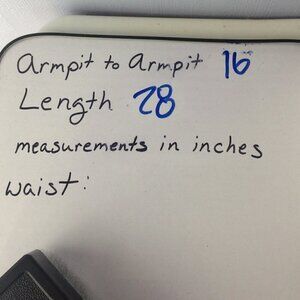 armpit to Armpit 16
Length 28
measurements in inches
waist: